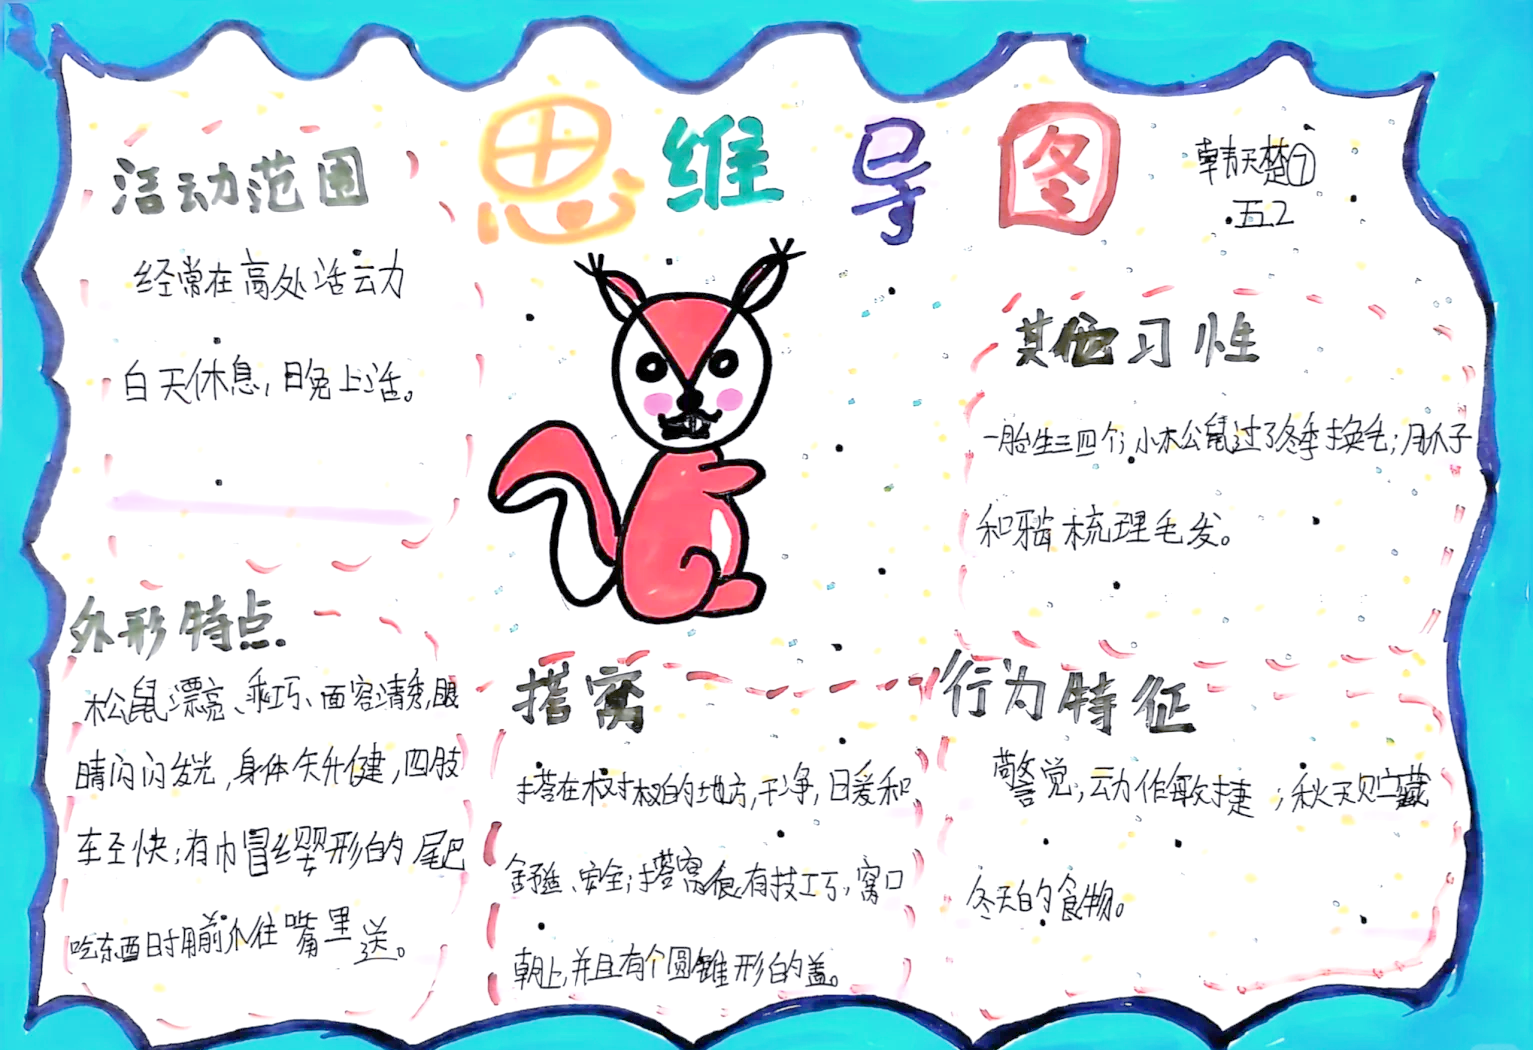 思维导图
韩天楚⑦
五.2
活动范围
经常在高处活动
白天休息,日免上活。
其他习性
一胎生三四个;小松鼠过了冬季换毛;用爪子
和牙齿梳理毛发。
外形特点
松鼠漂亮、乖巧、面容清秀,眼
睛闪闪发光,身体矢升健,四肢
车圣快;有巾冒缨形的尾巴
吃东西时用前爪往嘴里送。
搭窝
搭在树杈的地方,干净,日爰和
舒适、安全;搭窝很有技巧,窝口
朝上,并且有个圆锥形的盖。
行为特征
警觉,动作敏捷;秋天贮藏
冬天的食物。